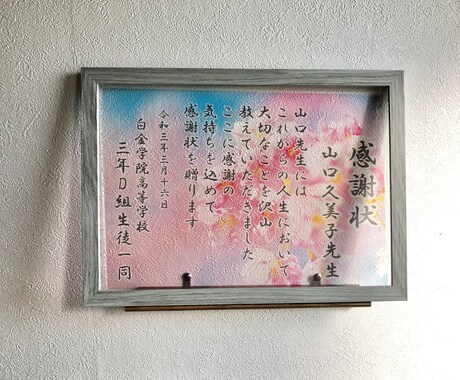 感謝状
山口久美子先生
山口先生には
これからの人生において
大切なことを沢山
教えていただきました
ここに感謝の
気持ちを込めて
感謝状を贈ります
令和三年三月十六日
白金学院高等学校
三年D組生徒一同